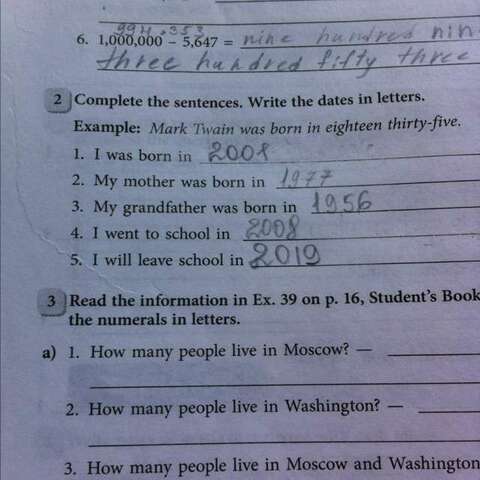 994,353
6. 1,000,000 – 5,647 = nine hundred nin
three hundred fifty three
2 Complete the sentences. Write the dates in letters.
Example: Mark Twain was born in eighteen thirty-five.
1. I was born in
2. My mother was born in 1977
3. My grandfather was born in 1956
4. I went to school in 2008
5. I will leave school in 2019
3 Read the information in Ex. 39 on p. 16, Student's Book
the numerals in letters.
a) 1. How many people live in Moscow? —
2. How many people live in Washington? —
3. How many people live in Moscow and Washington